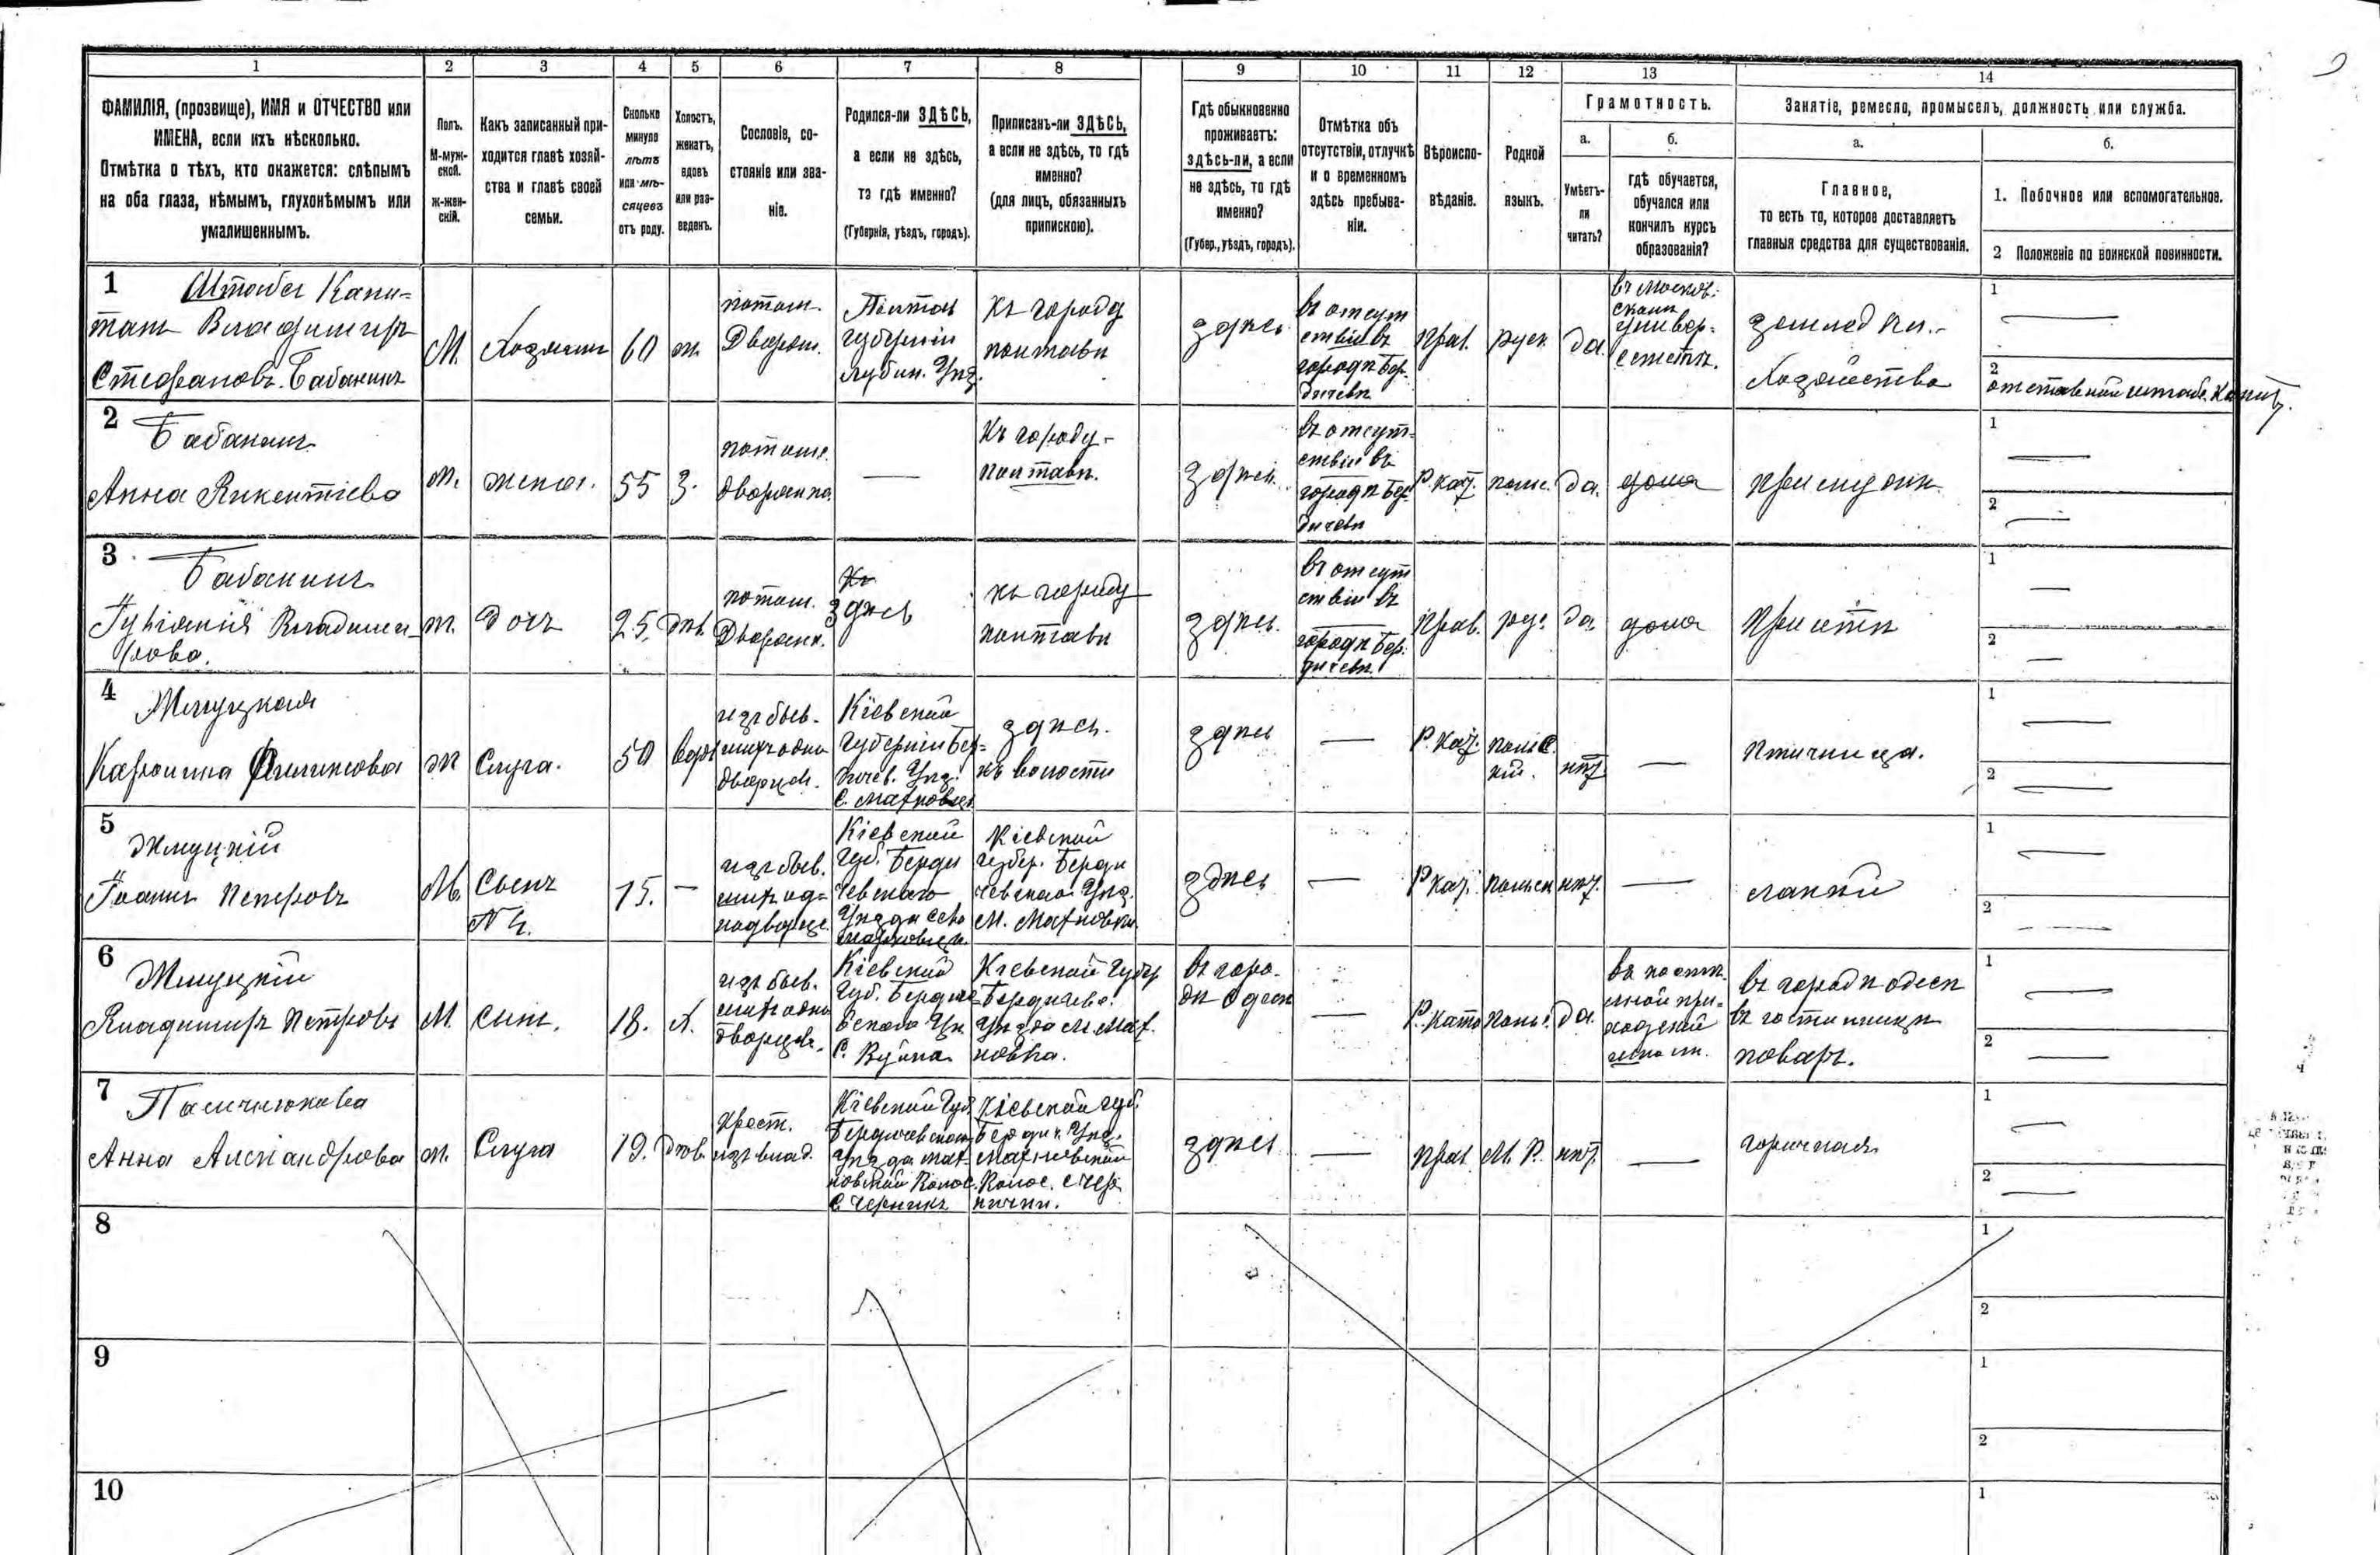 1 2 3 4 5 6 7 8 9 10 11 12 13 14
ФАМИЛІЯ, (прозвище), ИМЯ и ОТЧЕСТВО или
ИМЕНА, если ихъ нѣсколько.
Отмѣтка о тѣхъ, кто окажется: слѣпымъ
на оба глаза, нѣмымъ, глухонѣмымъ или
умалишеннымъ.
Полъ.
М-муж-
ской.
ж-жен-
скій.
Какъ записанный при-
ходится главѣ хозяй-
ства и главѣ своей
семьи.
Сколько
минуло
лѣтъ
или мѣ-
сяцевъ
отъ роду.
Холостъ,
женатъ,
вдовъ
или раз-
веденъ.
Сословіе, со-
стояніе или зва-
ніе.
Родился-ли ЗДѢСЬ,
а если не здѣсь,
то гдѣ именно?
(Губернія, уѣздъ, городъ).
Приписанъ-ли ЗДѢСЬ,
а если не здѣсь, то гдѣ
именно?
(для лицъ, обязанныхъ
припискою).
Гдѣ обыкновенно
проживаетъ:
здѣсь-ли, а если
не здѣсь, то гдѣ
именно?
(Губер., уѣздъ, городъ).
Отмѣтка объ
отсутствіи, отлучкѣ
и о временномъ
здѣсь пребыва-
ніи.
Вѣроиспо-
вѣданіе.
Родной
языкъ.
Грамотность.
а.
Умѣетъ-
ли
читать?
б.
гдѣ обучается,
обучался или
кончилъ курсъ
образованія?
Занятіе, ремесло, промыселъ, должность или служба.
а.
Главное,
то есть то, которое доставляетъ
главныя средства для существованія.
б.
1. Побочное или вспомогательное.
2 Положеніе по воинской повинности.
1
Штабсъ Капи-
танъ Владимиръ
Стефановъ Бабанинъ
М.
Хозяинъ
60
ж.
потом.
Дворян.
губерніи
Къ городу
полтавѣ
здѣсь
въ отсут
ствіи въ
городѣ Бер-
дичевѣ
прав.
русс.
да.
въ Москов-
скомъ
универ-
ситетѣ.
Хозяйство
1
2
отставной штабс. Капит.
2
Бабанина
Анна Викентіева
ж.
жена.
55
З.
потомс.
дворянка.
Къ городу
полтавѣ.
здѣсь.
въ отсут-
ствіи въ
городѣ Бер-
дичевѣ
Р. кат.
польс.
да.
дома
при мужѣ
1
2
3
Бабанина
Владими-
рова.
ж.
дочь
25.
дѣв.
потом.
Дворянк.
здѣсь
къ городу
полтавѣ
здѣсь.
въ отсут
ствіи въ
городѣ Бер-
дичевѣ.
прав.
рус.
да.
дома
1
2
4
Жмуцкая
ж
Слуга.
50
вдов.
изъ быв.
дворцев.
Кіевской
губерніи Бер-
дичев. Уѣз.
с. Махновцы
здѣсь.
къ волости
здѣсь
Р. кат.
польс.
кій.
нѣт.
птичница.
1
2
5
Жмуцкій
Іоанъ Петровъ
М.
Сынъ
№ 4.
15.
изъ быв.
Кіевской
губ. Берди
чевскаго
Кіевской
губер. Берди
чевскаго Уѣз.
М. Махновки
здѣсь
Р. кат.
польск.
нѣт.
лакей
1
2
6
Жмуцкій
Владимиръ Петровъ
М.
сынъ.
18.
Х.
изъ быв.
дворцев.
Кіевской
губ.
Кіевской губер
Бердичев.
уѣзда М. Мах-
новка.
въ горо-
дѣ Одесѣ
Р. като
польс.
да.
въ городѣ одесѣ
въ гостинницѣ
поваръ.
1
2
7
Анна Александрова
ж.
Слуга
19.
дѣв.
крест.
изъ влад.
Кіевской губ.
Бердичевскаго
уѣзда Мах-
новской Волос.
Кіевской губ.
Бердич. уѣз.
Махновской
Волос.
здѣсь
прав.
М. Р.
нѣт.
горничная
1
2
8
1
2
9
1
2
10
1